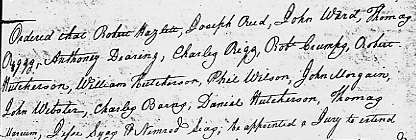 Ordered that Robert Hazlett, Joseph Reed, John Ward, Thomas
Anthoney Dearing, Charles Pegg, Robt Crumpt, Robert
Hutcherson, William Hutcherson, Phil Wilson, John Morgain,
John Webster, Charles Barns, Daniel Hutcherson, Thomas
& Nimrod be appointed a Jury to attend